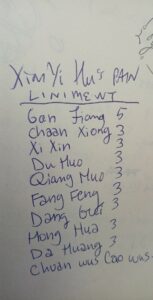 Xin Yi Hu's PAW
LINIMENT
Gan Jiang 5
Chaan Xiong 3
Xi Xin 3
Du Huo 3
Qiang Huo 3
Fang Feng 3
Dang Gui 3
Hong Hua 3
Da Huang 3
Chuan wus Cao wus.